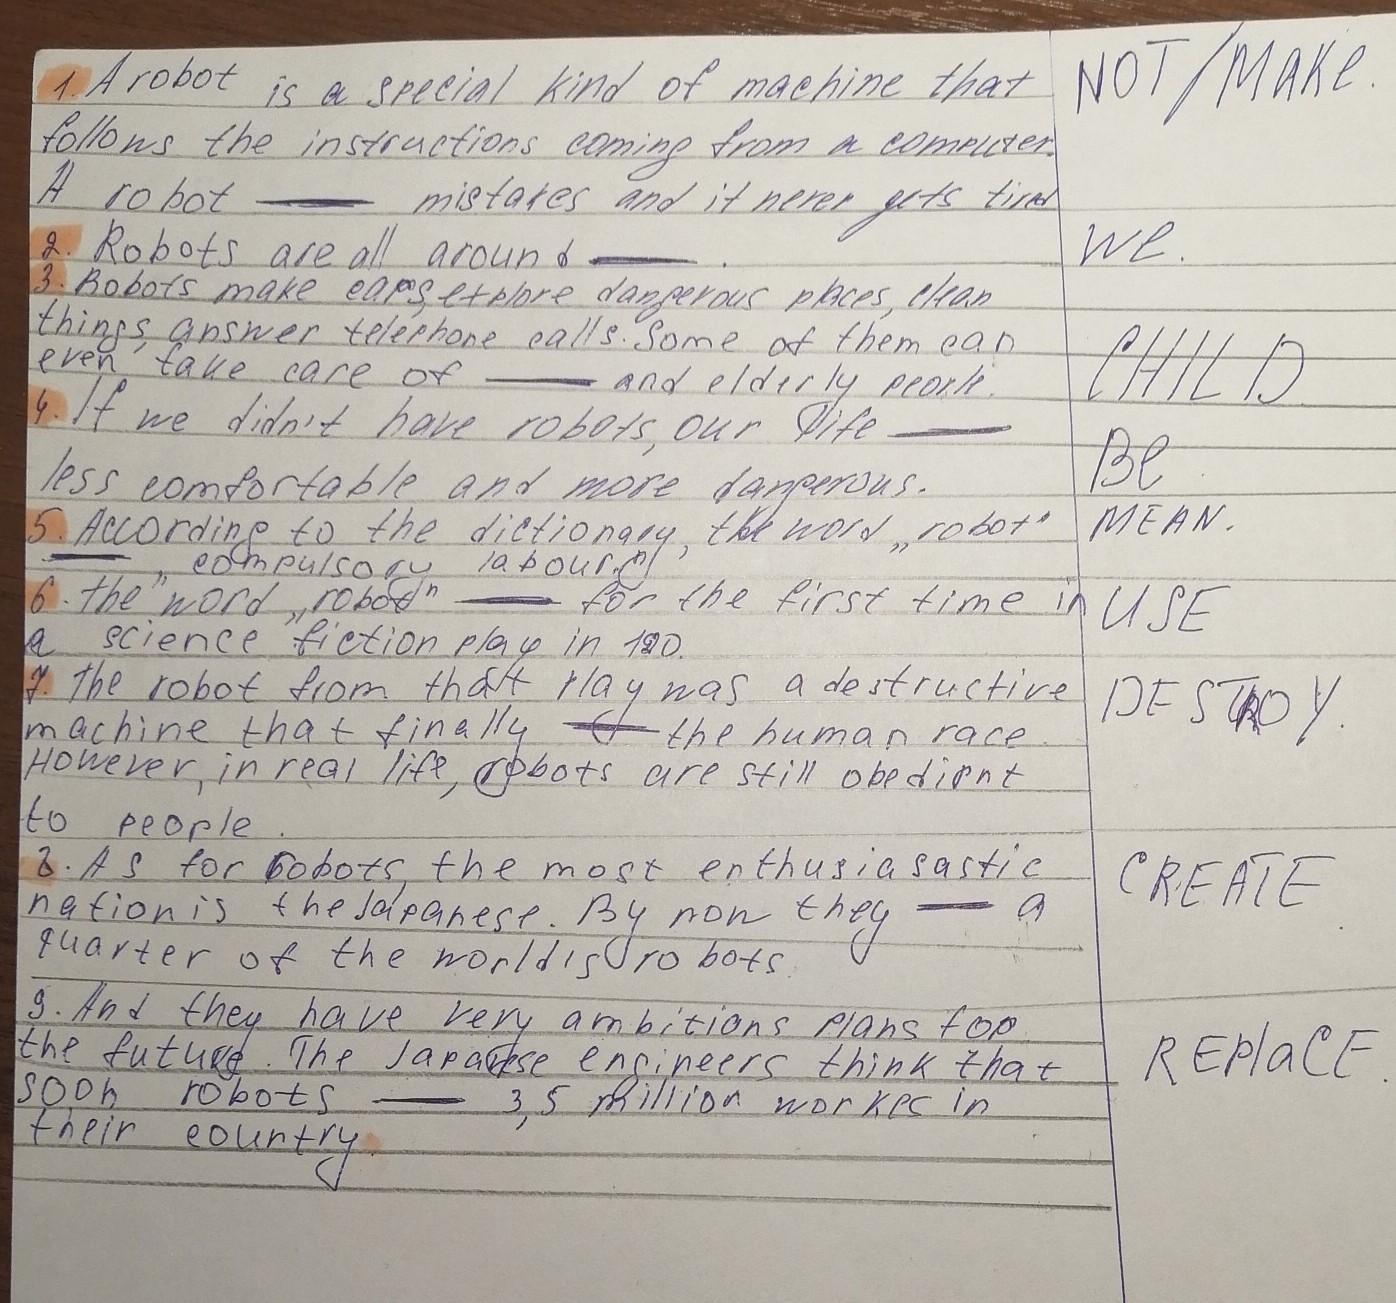 1. A robot is a special kind of machine that NOT/MAKE.
follows the instructions coming from a computer.
A robot —— mistakes and it never gets tired
2. Robots are all around ——. We.
3. Robots make cars, explore dangerous places, clean
things, answer telephone calls. Some of them can CHILD
even take care of —— and elderly people.
4. If we didn't have robots, our life —— Be
less comfortable and more dangerous.
5. According to the dictionary, the word „robot" MEAN.
—— „compulsory labour"
6. The word „robot" —— for the first time in USE
a science fiction play in 1920.
7. The robot from that play was a destructive DESTROY.
machine that finally —— the human race.
However, in real life, robots are still obedient
to people.
8. As for robots, the most enthusiasastic CREATE
nation is the Japanese. By now they —— a
quarter of the world's robots
9. And they have very ambitions plans for
the future. The Japanese engineers think that REPlaCE.
soon robots —— 3,5 million workes in
their country.